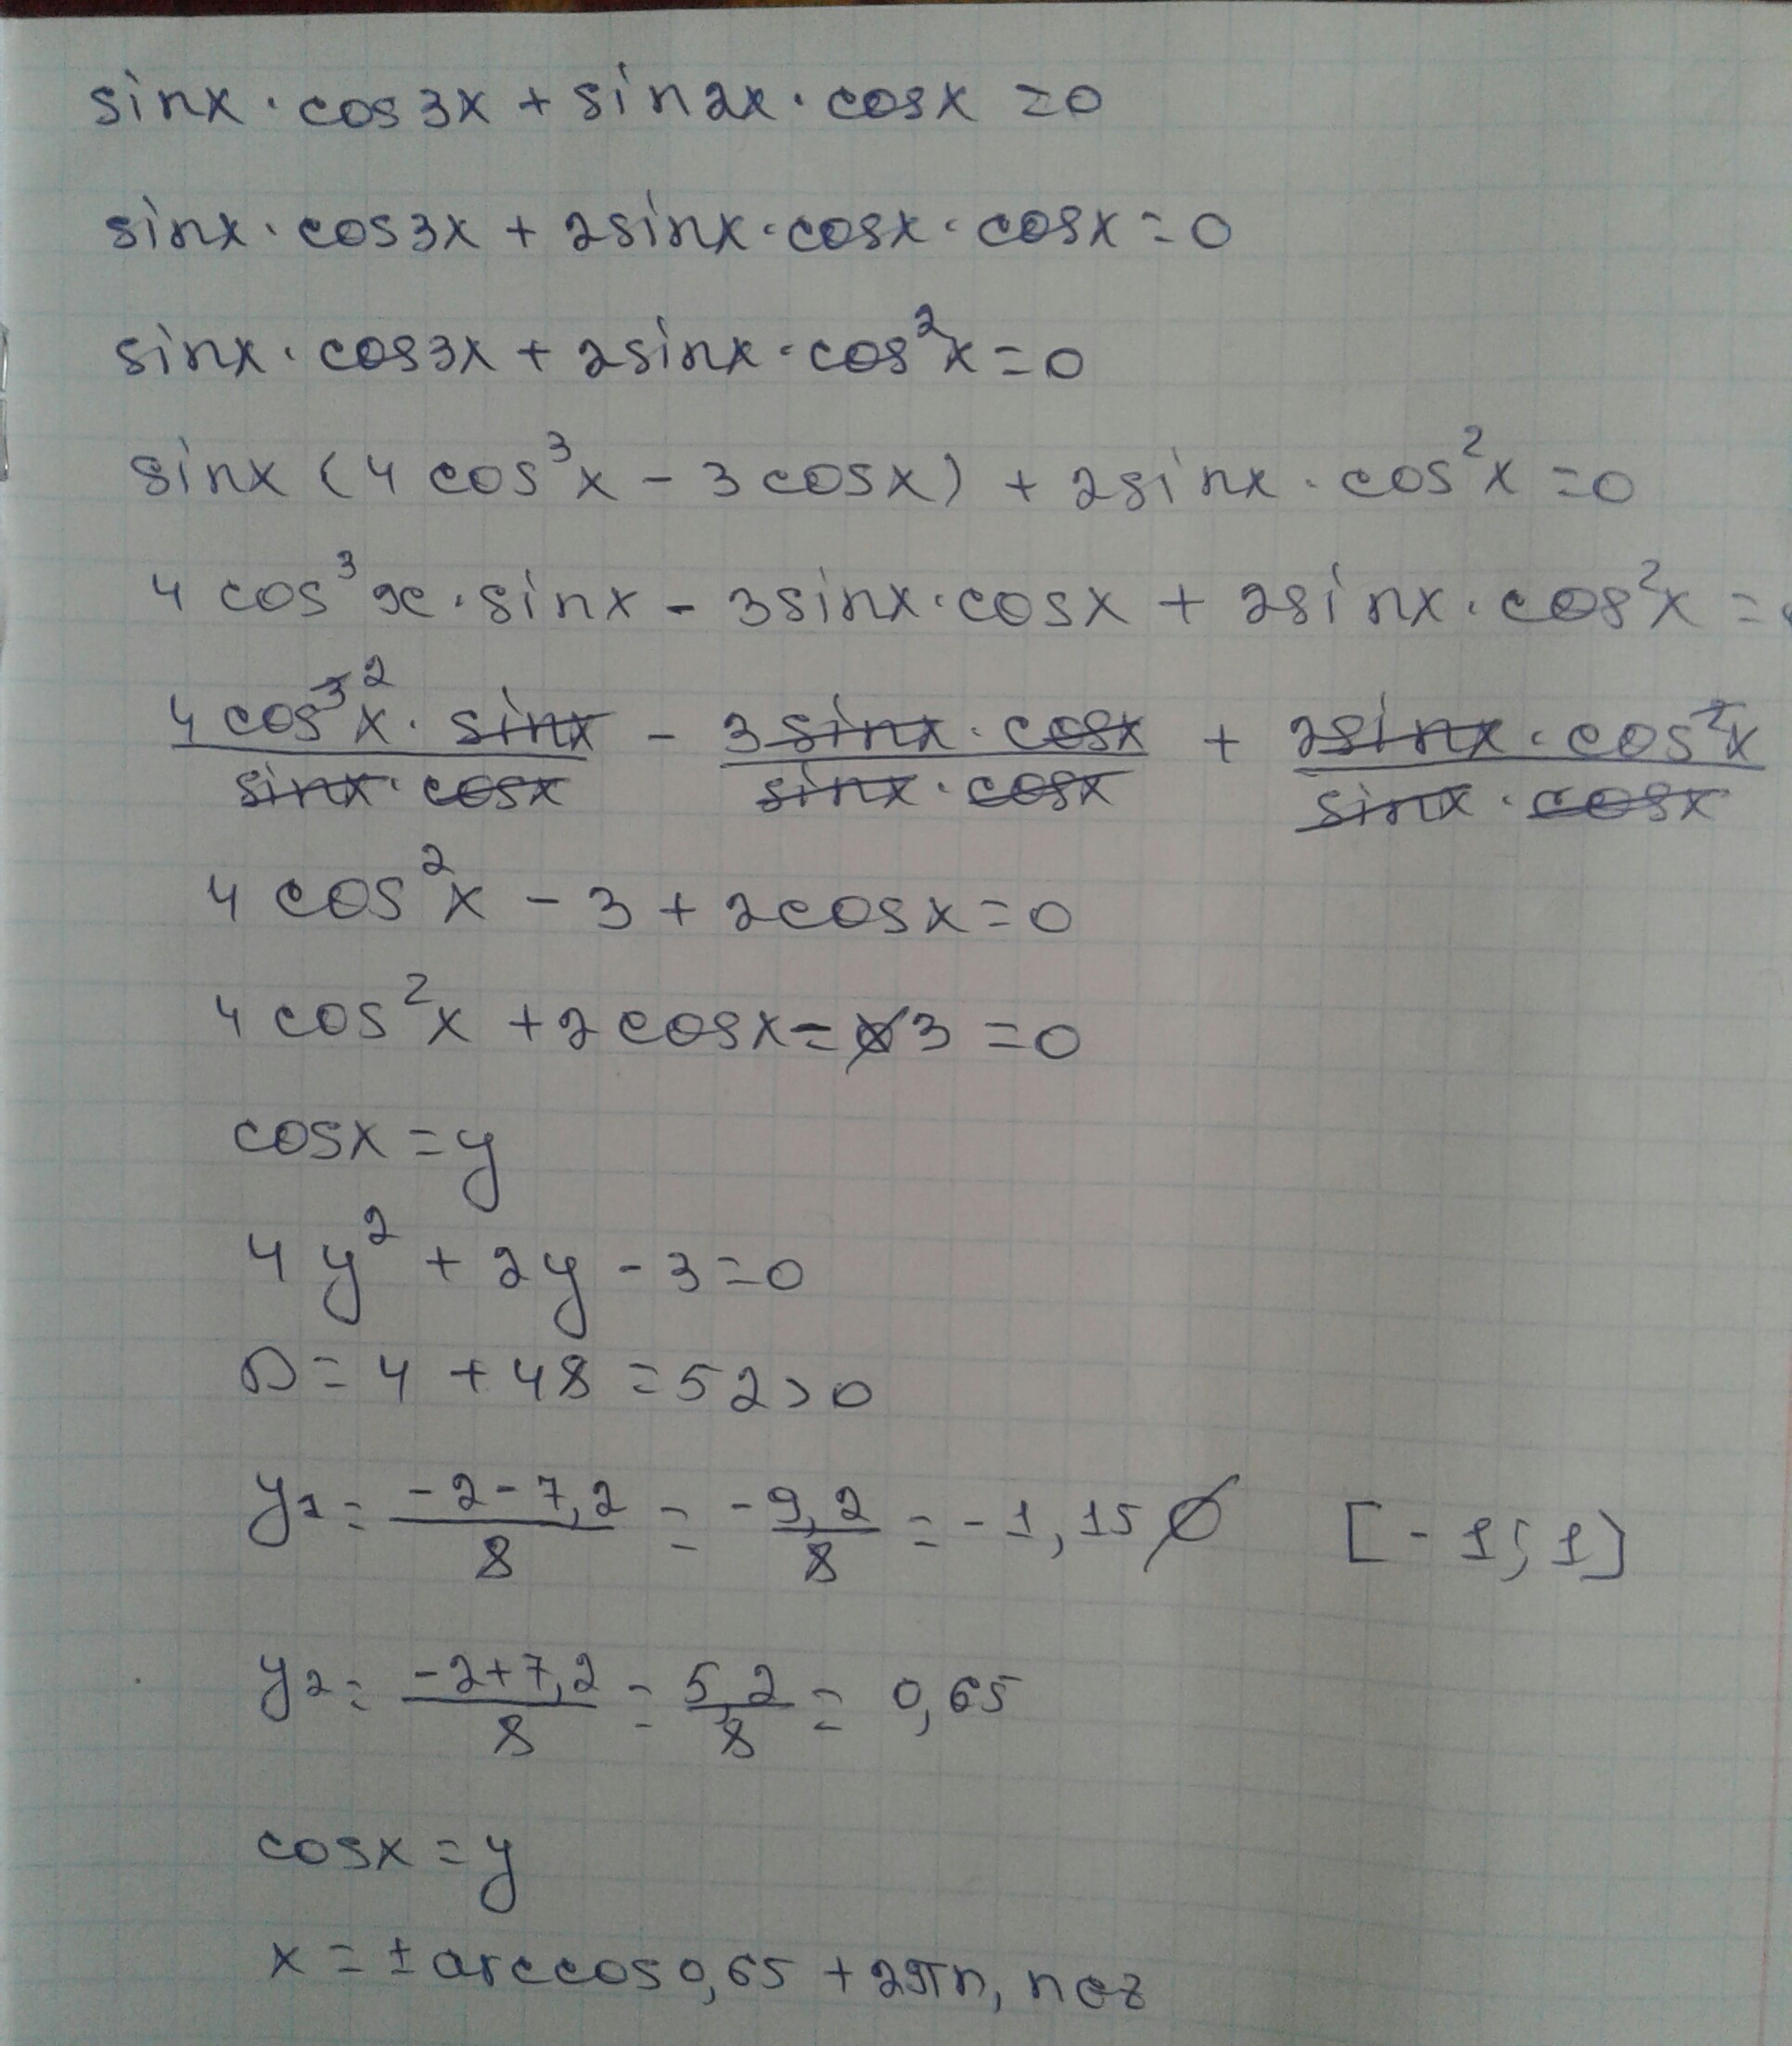 sinx · cos3x + sin2x · cosx = 0
sinx · cos3x + 2sinx · cosx · cosx = 0
sinx · cos3x + 2sinx · cos²x = 0
sinx (4cos³x - 3cosx) + 2sinx · cos²x = 0
4cos³x · sinx - 3sinx · cosx + 2sinx · cos²x =
4cos³²x · sinx / sinx · cosx - 3sinx · cosx / sinx · cosx + 2sinx · cos²x / sinx · cosx
4cos²x - 3 + 2cosx = 0
4cos²x + 2cosx - 3 = 0
cosx = y
4y² + 2y - 3 = 0
D = 4 + 48 = 52 > 0
y₁ = -2-7,2 / 8 = -9,2 / 8 = -1,15 ∅ [-1; 1]
y₂ = -2+7,2 / 8 = 5,2 / 8 = 0,65
cosx = y
x = ± arccos0,65 + 2πn, n∈z